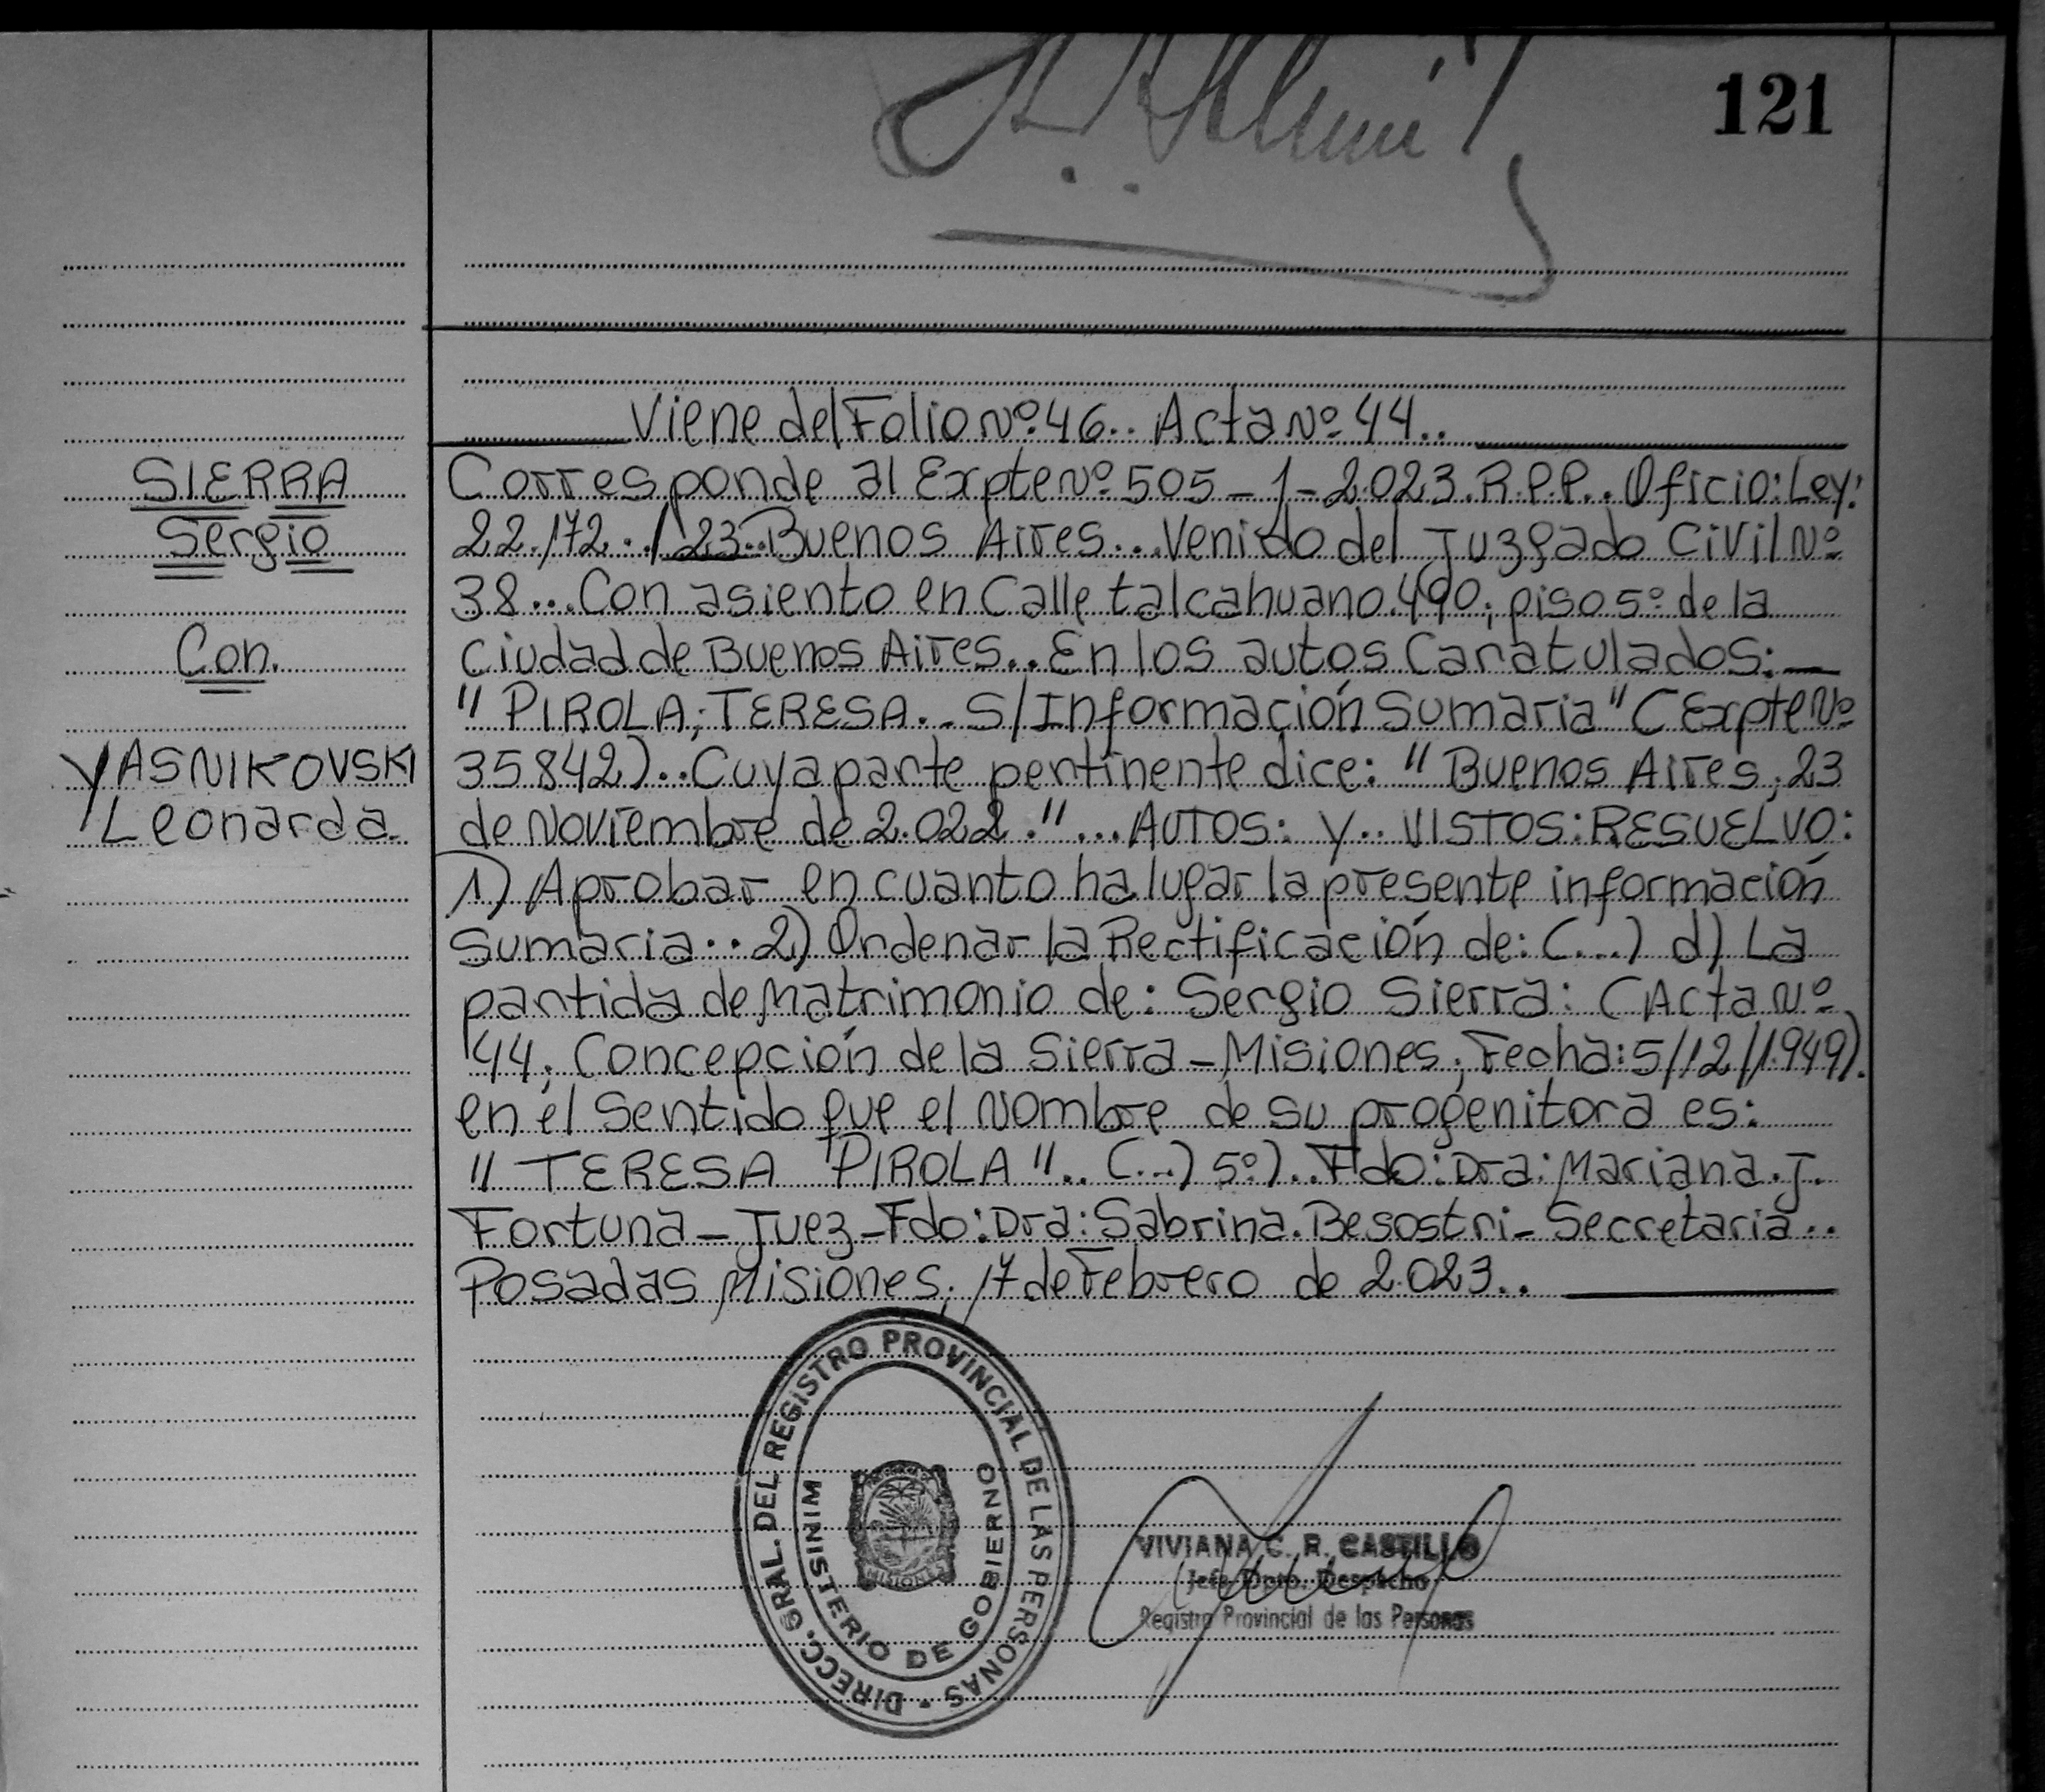 121
Viene del Folio Nº 46.. Acta Nº 44..
SIERRA
Sergio
Con.
YASNIKOVSKI
Leonarda.
Corresponde al Expte Nº 505-1-2.023. R.P.P.. Oficio: Ley:
22.172../23..Buenos Aires... Venido del Juzgado Civil Nº
38... Con asiento en Calle talcahuano.490; piso 5º de la
Ciudad de Buenos Aires.. En los autos Caratulados:
" PIROLA; TERESA.. S/Información Sumaria" (Expte Nº
35.842)... Cuya parte pertinente dice: " Buenos Aires; 23
de Noviembre de 2.022."... AUTOS: Y.. VISTOS: RESUELVO:
1) Aprobar en cuanto ha lugar la presente información
Sumaria.. 2) Ordenar la Rectificación de: (...) d) La
partida de Matrimonio de: Sergio Sierra: (Acta Nº
44; Concepción de la Sierra - Misiones; Fecha: 5/12/1.949).
en el Sentido que el Nombre de su progenitora es:
" TERESA PIROLA ".. (...) 5º).. Fdo: Dra: Mariana. J.
Fortuna - Juez - Fdo: Dra: Sabrina. Besostri - Secretaria..
Posadas Misiones; 17 de Febrero de 2.023..
DIRECC. GRAL. DEL REGISTRO PROVINCIAL DE LAS PERSONAS
MINISTERIO DE GOBIERNO
MISIONES
VIVIANA C. R. CASTILLO
Jefe Dpto. Despacho
Registro Provincial de las Personas